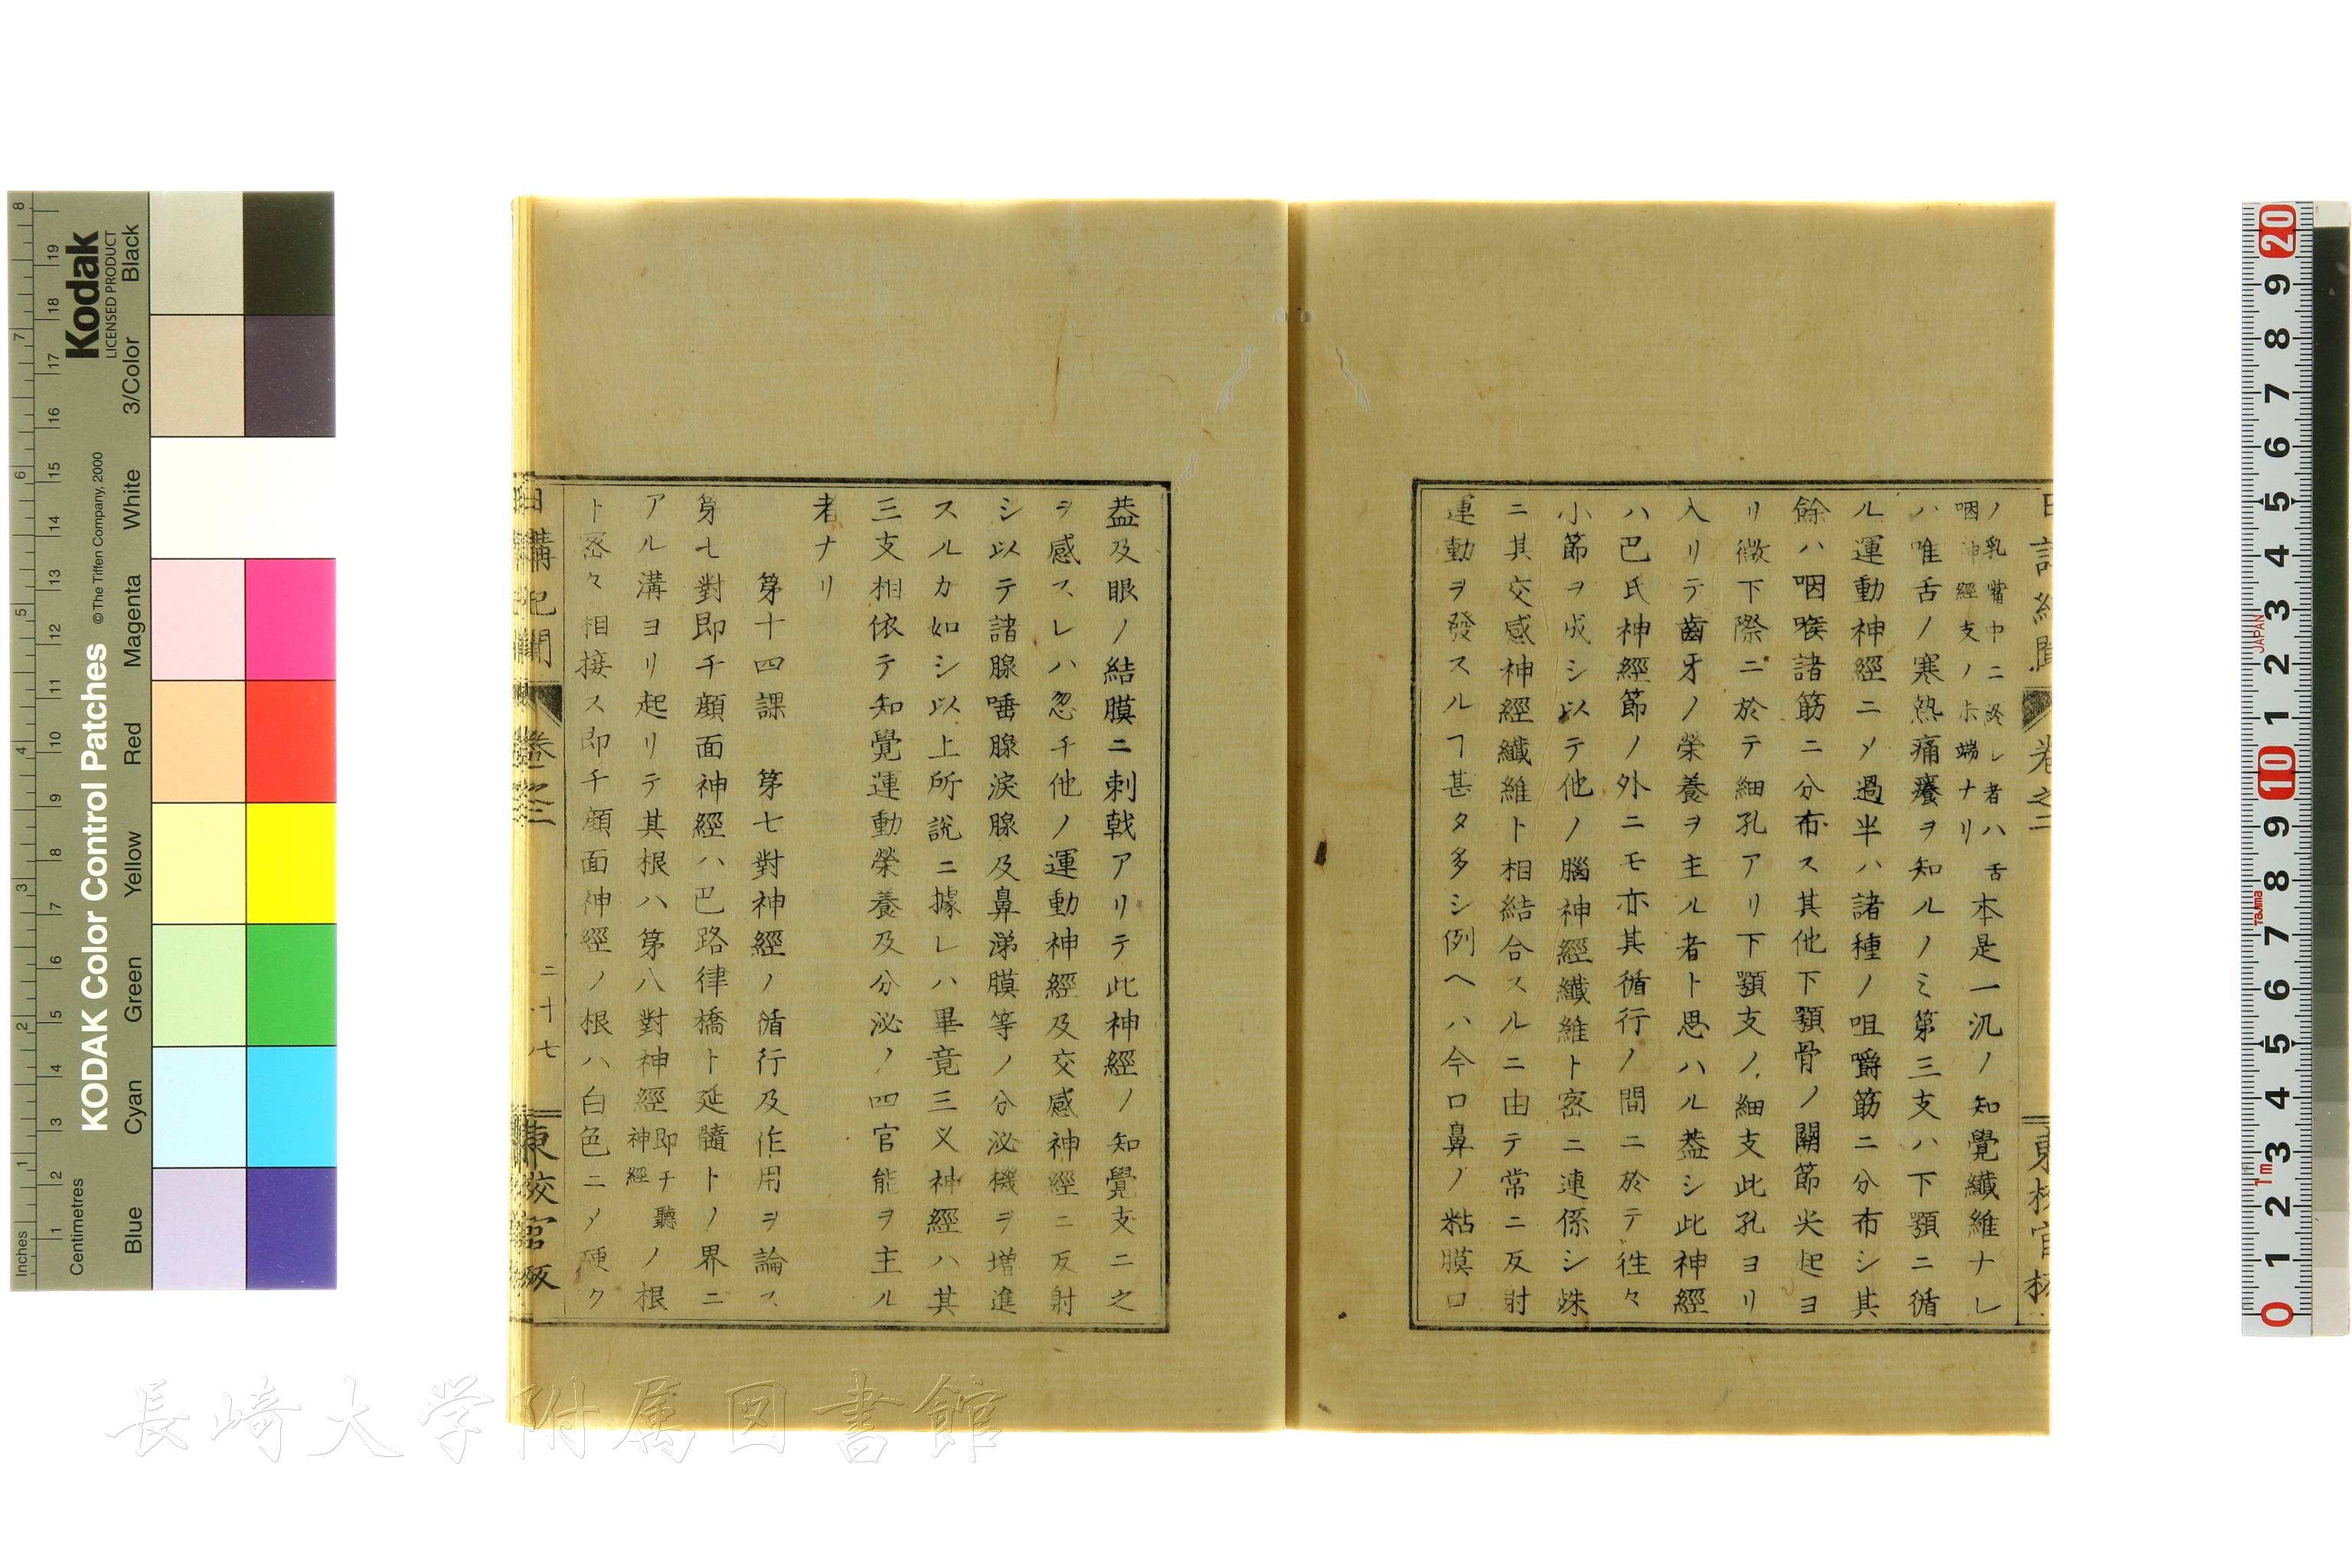 ノ乳嘴中ニ終レ者ハ舌
咽神經支ノ末端ナリ
本是一汎ノ知覺纖維ナレ
ハ唯舌ノ寒熱痛癢ヲ知ルノミ第三支ハ下顎ニ循
ル運動神經ニㄨ過半ハ諸種ノ咀嚼筋ニ分布シ其
餘ハ咽喉諸筋ニ分布ス其他下顎骨ノ關節尖起ヨ
リ微下際ニ於テ細孔アリ下顎支ノ細支此孔ヨリ
入リテ齒牙ノ榮養ヲ主ル者ト思ハル葢シ此神經
ハ巴氏神經節ノ外ニモ亦其循行ノ間ニ於テ徃々
小節ヲ成シ以テ他ノ腦神經纖維ト密ニ連係シ殊
ニ其交感神經纖維ト相結合スルニ由テ常ニ反射
運動ヲ發スルヿ甚タ多シ例ヘハ今口鼻ノ粘膜口
葢及眼ノ結膜ニ刺戟アリテ此神經ノ知覺支ニ之
ヲ感スレハ忽チ他ノ運動神經及交感神經ニ反射
シ以テ諸腺唾腺淚腺及鼻涕膜等ノ分泌機ヲ増進
スルカ如シ以上所說ニ據レハ畢竟三叉神經ハ其
三支相依テ知覺運動榮養及分泌ノ四官能ヲ主ル
者ナリ
第十四課 第七對神經ノ循行及作用ヲ論ス
第七對即チ顔面神經ハ巴路律橋ト延髓トノ界ニ
アル溝ヨリ起リテ其根ハ第八對神經
即チ聽
神經
ノ根
ト密々相接ス即チ顔面神經ノ根ハ白色ニㄨ硬ク
日講記聞 卷之二 二十七 東校官版
Kodak
LICENSED PRODUCT
KODAK Color Control Patches
© The Tiffen Company, 2000
Inches
Centimetres
Blue Cyan Green Yellow Red Magenta White 3/Color Black
JAPAN
Tajima
1m
長崎大学附属図書館